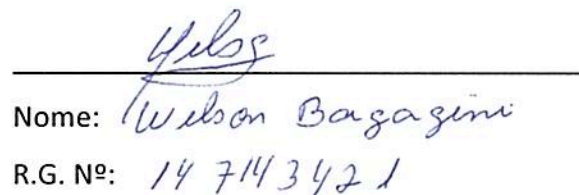 Nome: Wilson Bagagini
R.G. Nº: 14 714 342 1